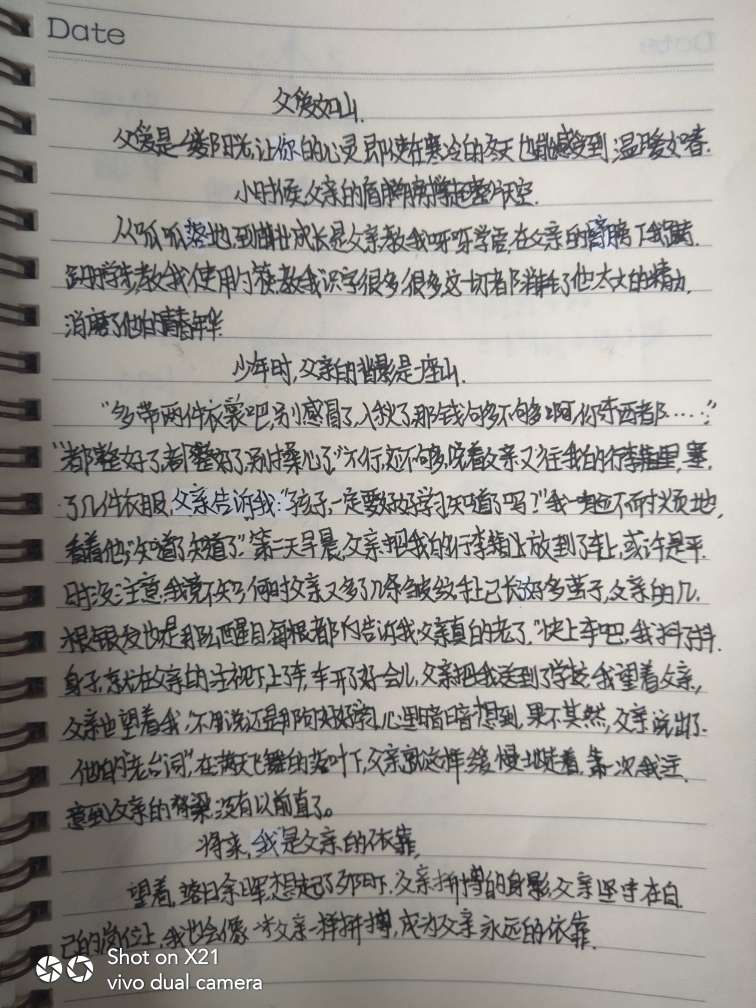 Date
父爱如山.
父爱是一缕阳光,让你的心灵即使在寒冷的冬天也能感受到温暖如春.
小时候,父亲的肩膀撑起整个天空.
从呱呱落地,到茁壮成长是父亲,教我呀呀学语,在父亲的臂膀下我蹒
跚学步,教我使用勺筷,教我识字很多很多这一切者阝耗了他太大的精力,
消磨了他的青春年华.
少年时,父亲的背影是一座山.
“多带两件衣裳吧,别感冒了,入秋了那钱够不够啊,你东西都……”
“都整好了,都整好了,别操心了.”“不行,还不够,说着父亲又往我的行李箱里,塞.
了几件衣服,父亲告诉我:“孩子,一定要好好学习知道了吗?”我一如不耐烦地,
看着他,“知道了知道了”.第二天早晨,父亲把我的行李箱放到了车上,或许是平.
时没注意,我竟不知何时父亲又多了几条皱纹,手上已长好多茧子,父亲的几.
根银发也是那么醒目,每根都告诉我父亲真的老了.“快上车吧,我抖了抖.
身子,在父亲的注视下上了车,车开了好一会儿,父亲把我送到了学校,我望着父亲,
父亲也望着我,不用说还是那句好好学习,心里暗暗想到,果不其然,父亲说出了.
他的“老台词”,在满天飞舞的落叶下,父亲就这样缓慢地走着,第一次我注.
意到父亲的脊梁没有以前直了。
将来,我是父亲的依靠,
望着,落日余晖,想起了父亲拼搏的身影,父亲坚守在自.
己的岗位上,我也会像父亲一样拼搏,成为父亲永远的依靠.
Shot on X21
vivo dual camera